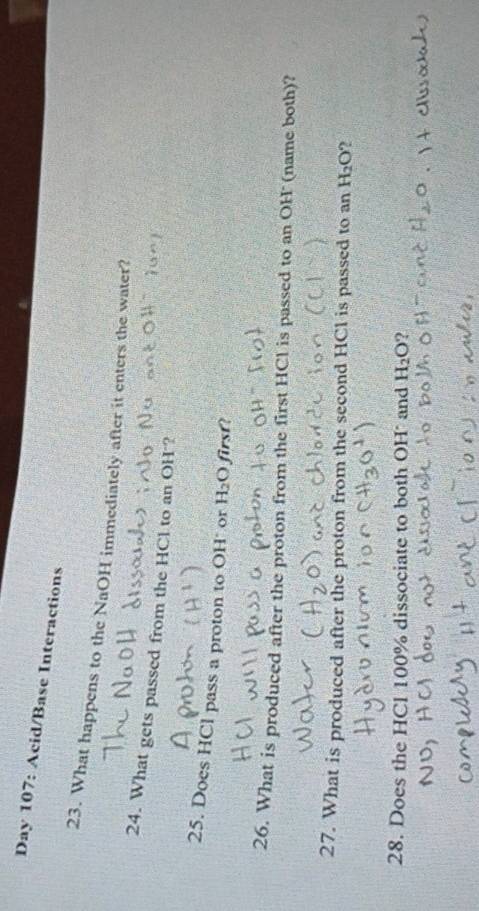 Day 107: Acid/Base Interactions
23. What happens to the NaOH immediately after it enters the water?
The NaOH dissociates into Na and OH⁻ ions
24. What gets passed from the HCl to an OH⁻?
A proton (H⁺)
25. Does HCl pass a proton to OH⁻ or H₂O first?
HCl will pass a proton to OH⁻ first
26. What is produced after the proton from the first HCl is passed to an OH⁻ (name both)?
Water (H₂O) and chloride ion (Cl⁻)
27. What is produced after the proton from the second HCl is passed to an H₂O?
Hydronium ion (H₃O⁺)
28. Does the HCl 100% dissociate to both OH⁻ and H₂O?
No, HCl does not dissociate to both OH⁻ and H₂O. It dissociates
completely H+ and Cl⁻ ions in water.